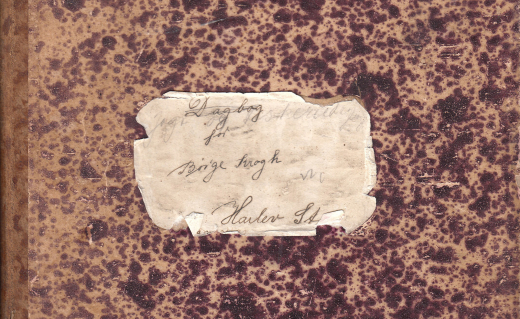 Dagbog
for
Börge Krogh
Harlev St